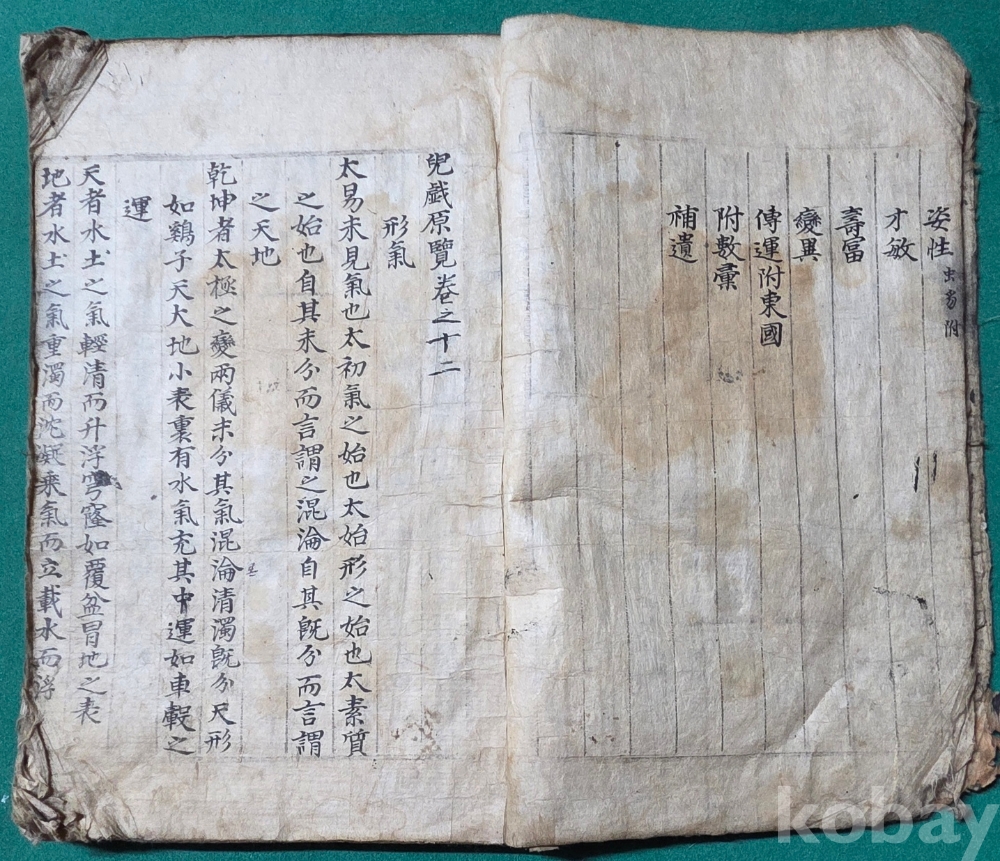 姿性 虫豸附
才敏
壽富
變異
傳運附東國
附數彙
補遺
兒戱原覽卷之十二
形氣
太易未見氣也太初氣之始也太始形之始也太素質
之始也自其未分而言謂之混淪自其旣分而言謂
之天地
乾坤者太極之變兩儀未分其氣混淪清濁旣分天形
如鷄子天大地小表裏有水氣充其中運如車轂之
運
天者水土之氣輕清而升浮穹窿如覆盆冒地之表
地者水土之氣重濁而沈凝乘氣而立載水而浮
kobay